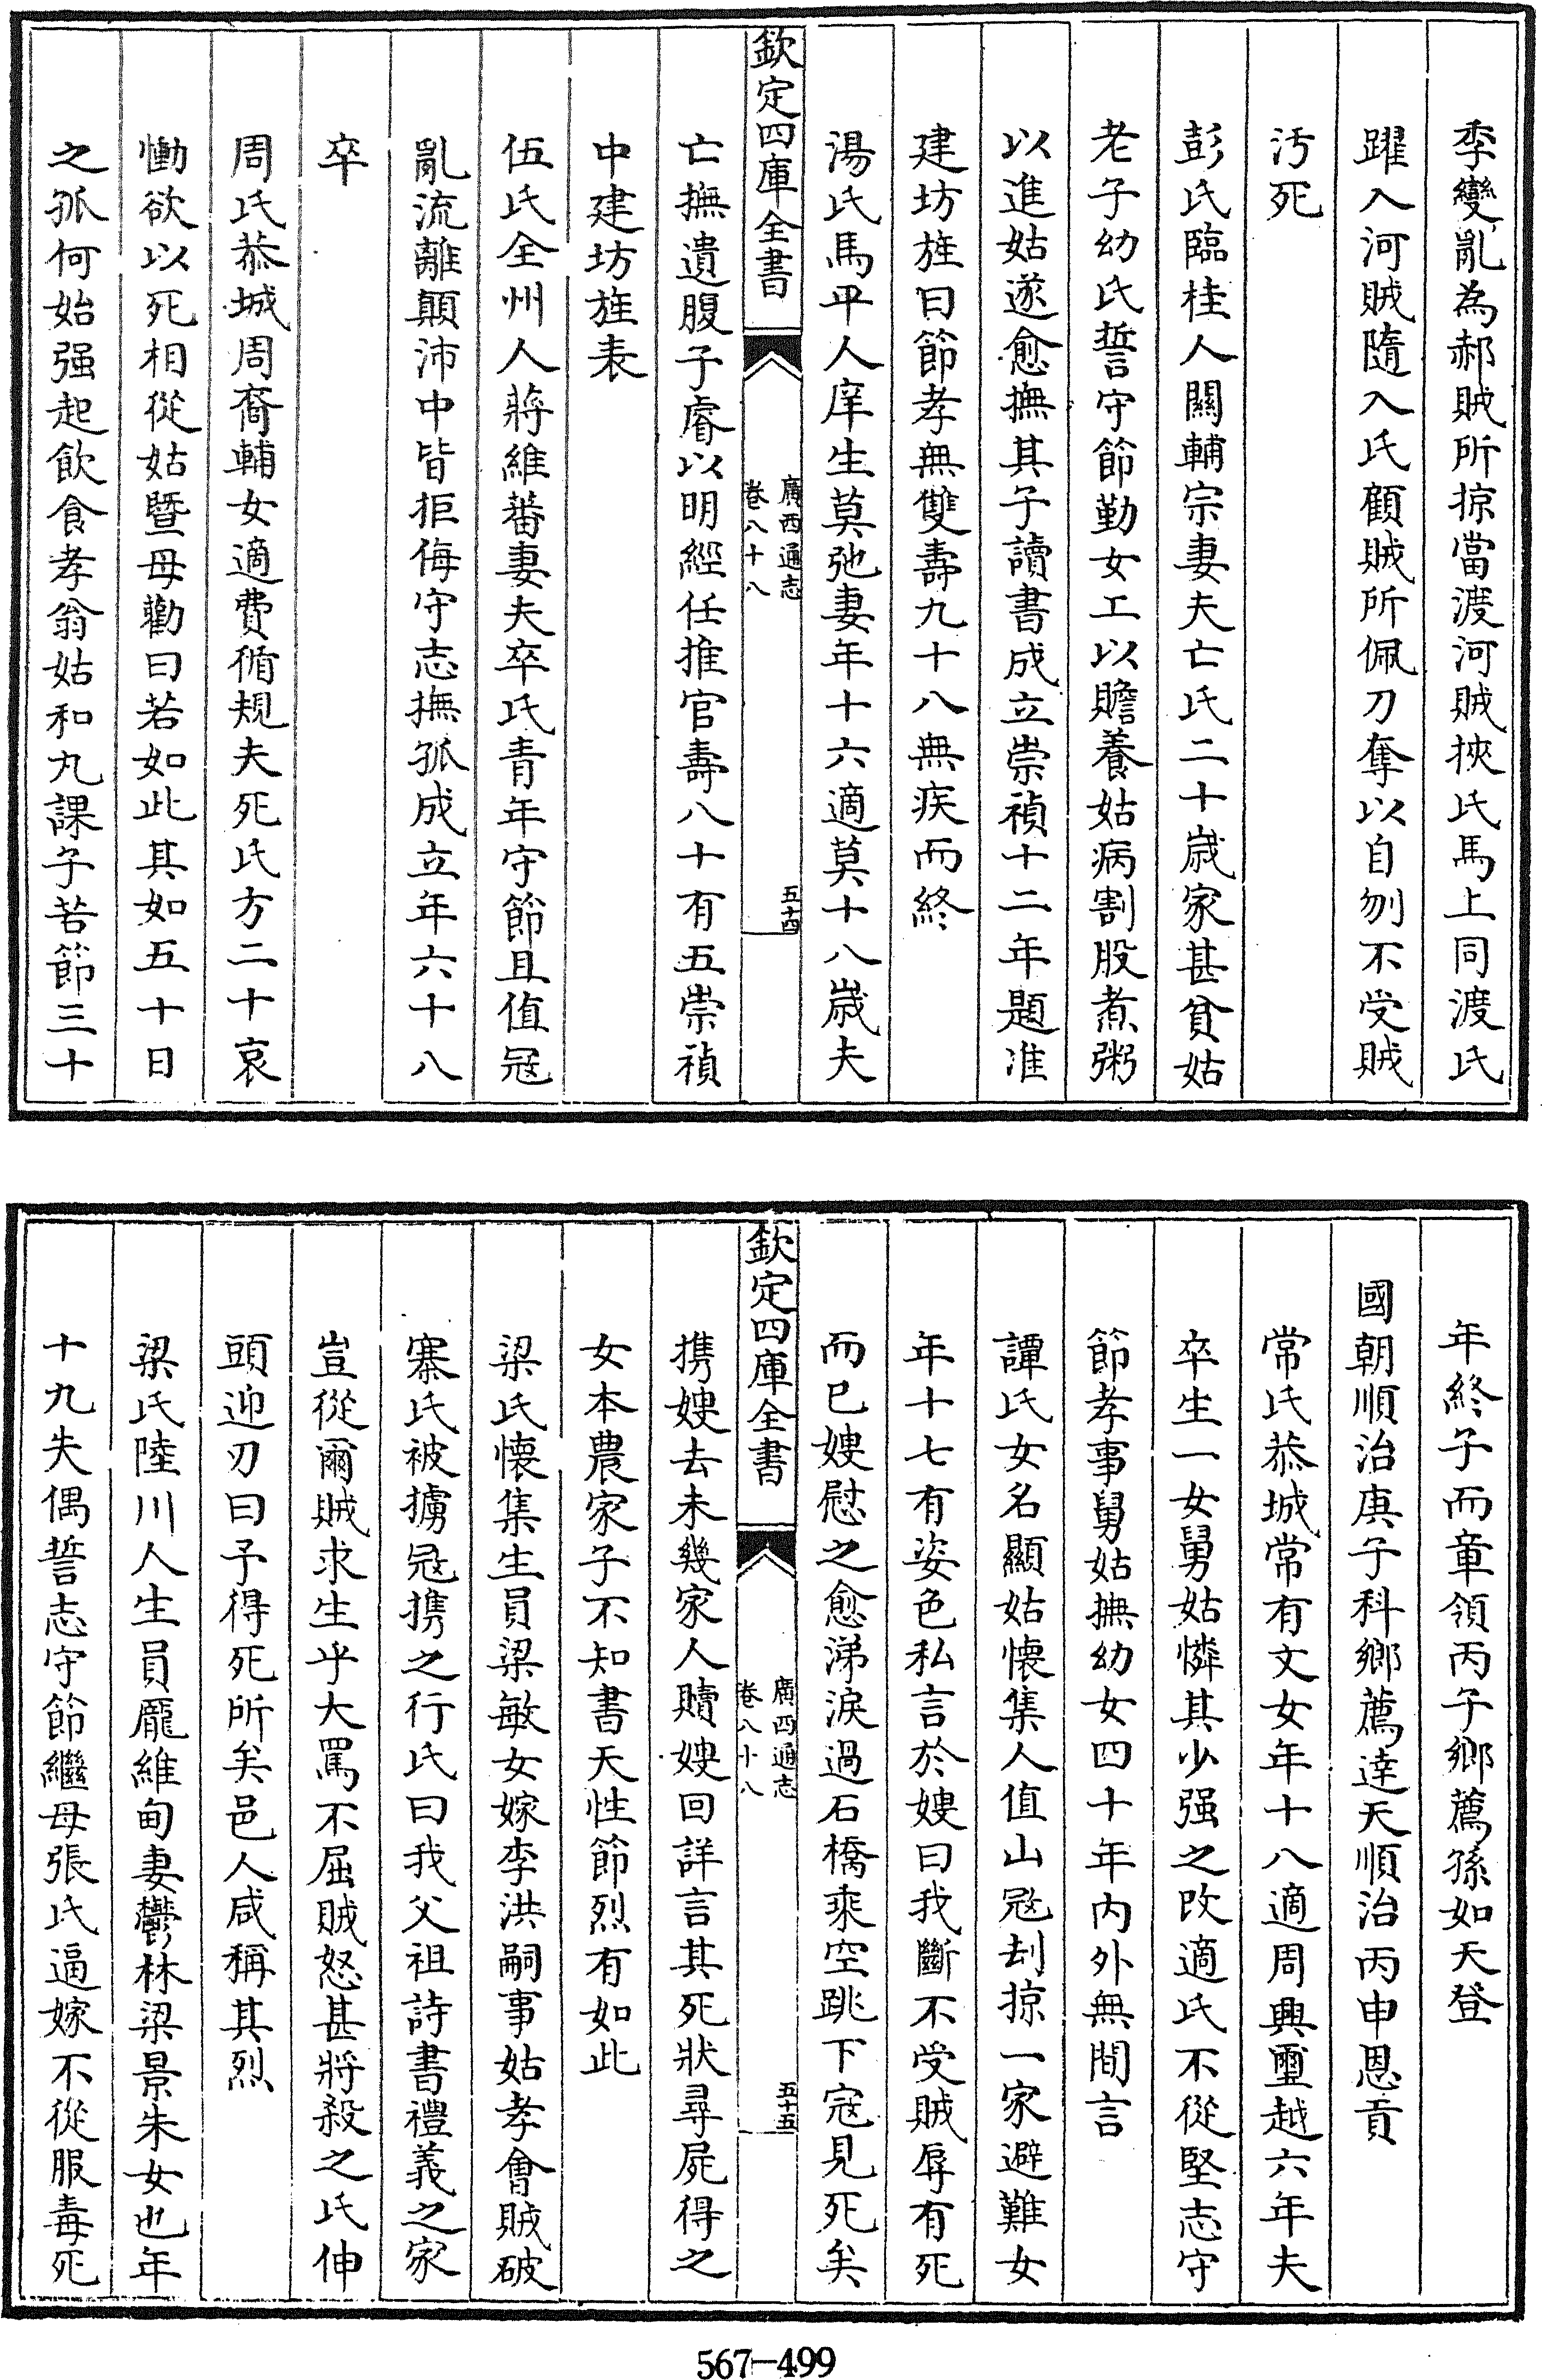 季變亂為郝賊所掠當渡河賊挾氏馬上同渡氏
躍入河賊隨入氏顧賊所佩刀奪以自刎不受賊
汚死
彭氏臨桂人關輔宗妻夫亡氏二十歲家甚貧姑
老子幼氏誓守節勤女工以贍養姑病割股煮粥
以進姑遂愈撫其子讀書成立崇禎十二年題准
建坊旌曰節孝無雙壽九十八無疾而終
湯氏馬平人庠生莫弛妻年十六適莫十八歲夫
欽定四庫全書
廣西通志
卷八十八
五十四
亡撫遺腹子睿以明經任推官壽八十有五崇禎
中建坊旌表
伍氏全州人蔣維蕃妻夫卒氏青年守節且值冦
亂流離顛沛中皆拒侮守志撫孤成立年六十八
卒
周氏恭城周裔輔女適費循規夫死氏方二十哀
慟欲以死相從姑暨母勸曰若如此其如五十日
之孤何始强起飲食孝翁姑和丸課子苦節三十
年終子而章領丙子鄉薦孫如天登
國朝順治庚子科鄉薦達天順治丙申恩貢
常氏恭城常有文女年十八適周興璽越六年夫
卒生一女舅姑憐其少强之改適氏不從堅志守
節孝事舅姑撫幼女四十年内外無間言
譚氏女名顯姑懷集人值山冦刦掠一家避難女
年十七有姿色私言於嫂曰我斷不受賊辱有死
而已嫂慰之愈涕淚過石橋乘空跳下冦見死矣
欽定四庫全書
廣西通志
卷八十八
五十五
携嫂去未幾家人贖嫂回詳言其死狀尋屍得之
女本農家子不知書天性節烈有如此
梁氏懷集生員梁敏女嫁李洪嗣事姑孝會賊破
寨氏被擄冦携之行氏曰我父祖詩書禮義之家
豈從爾賊求生乎大罵不屈賊怒甚將殺之氏伸
頭迎刃曰予得死所矣邑人咸稱其烈
梁氏陸川人生員龐維甸妻鬱林梁景朱女也年
十九失偶誓志守節繼母張氏逼嫁不從服毒死
567-499